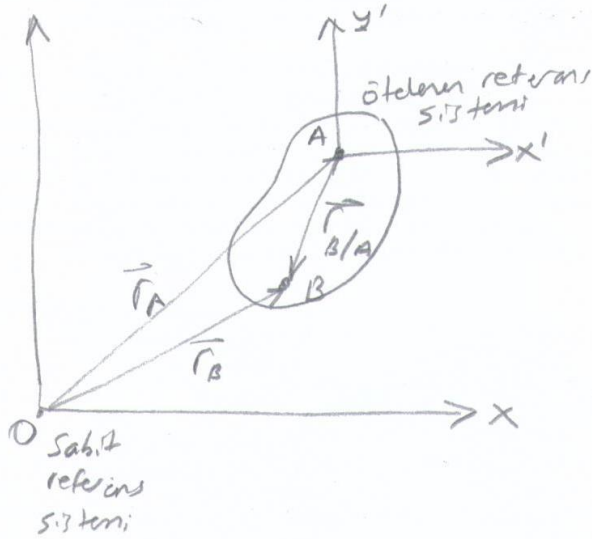 y'
ötelenen referans
sistemi
A
x'
r
B/A
B
r_A
r_B
O
x
Sabit
referans
sistemi